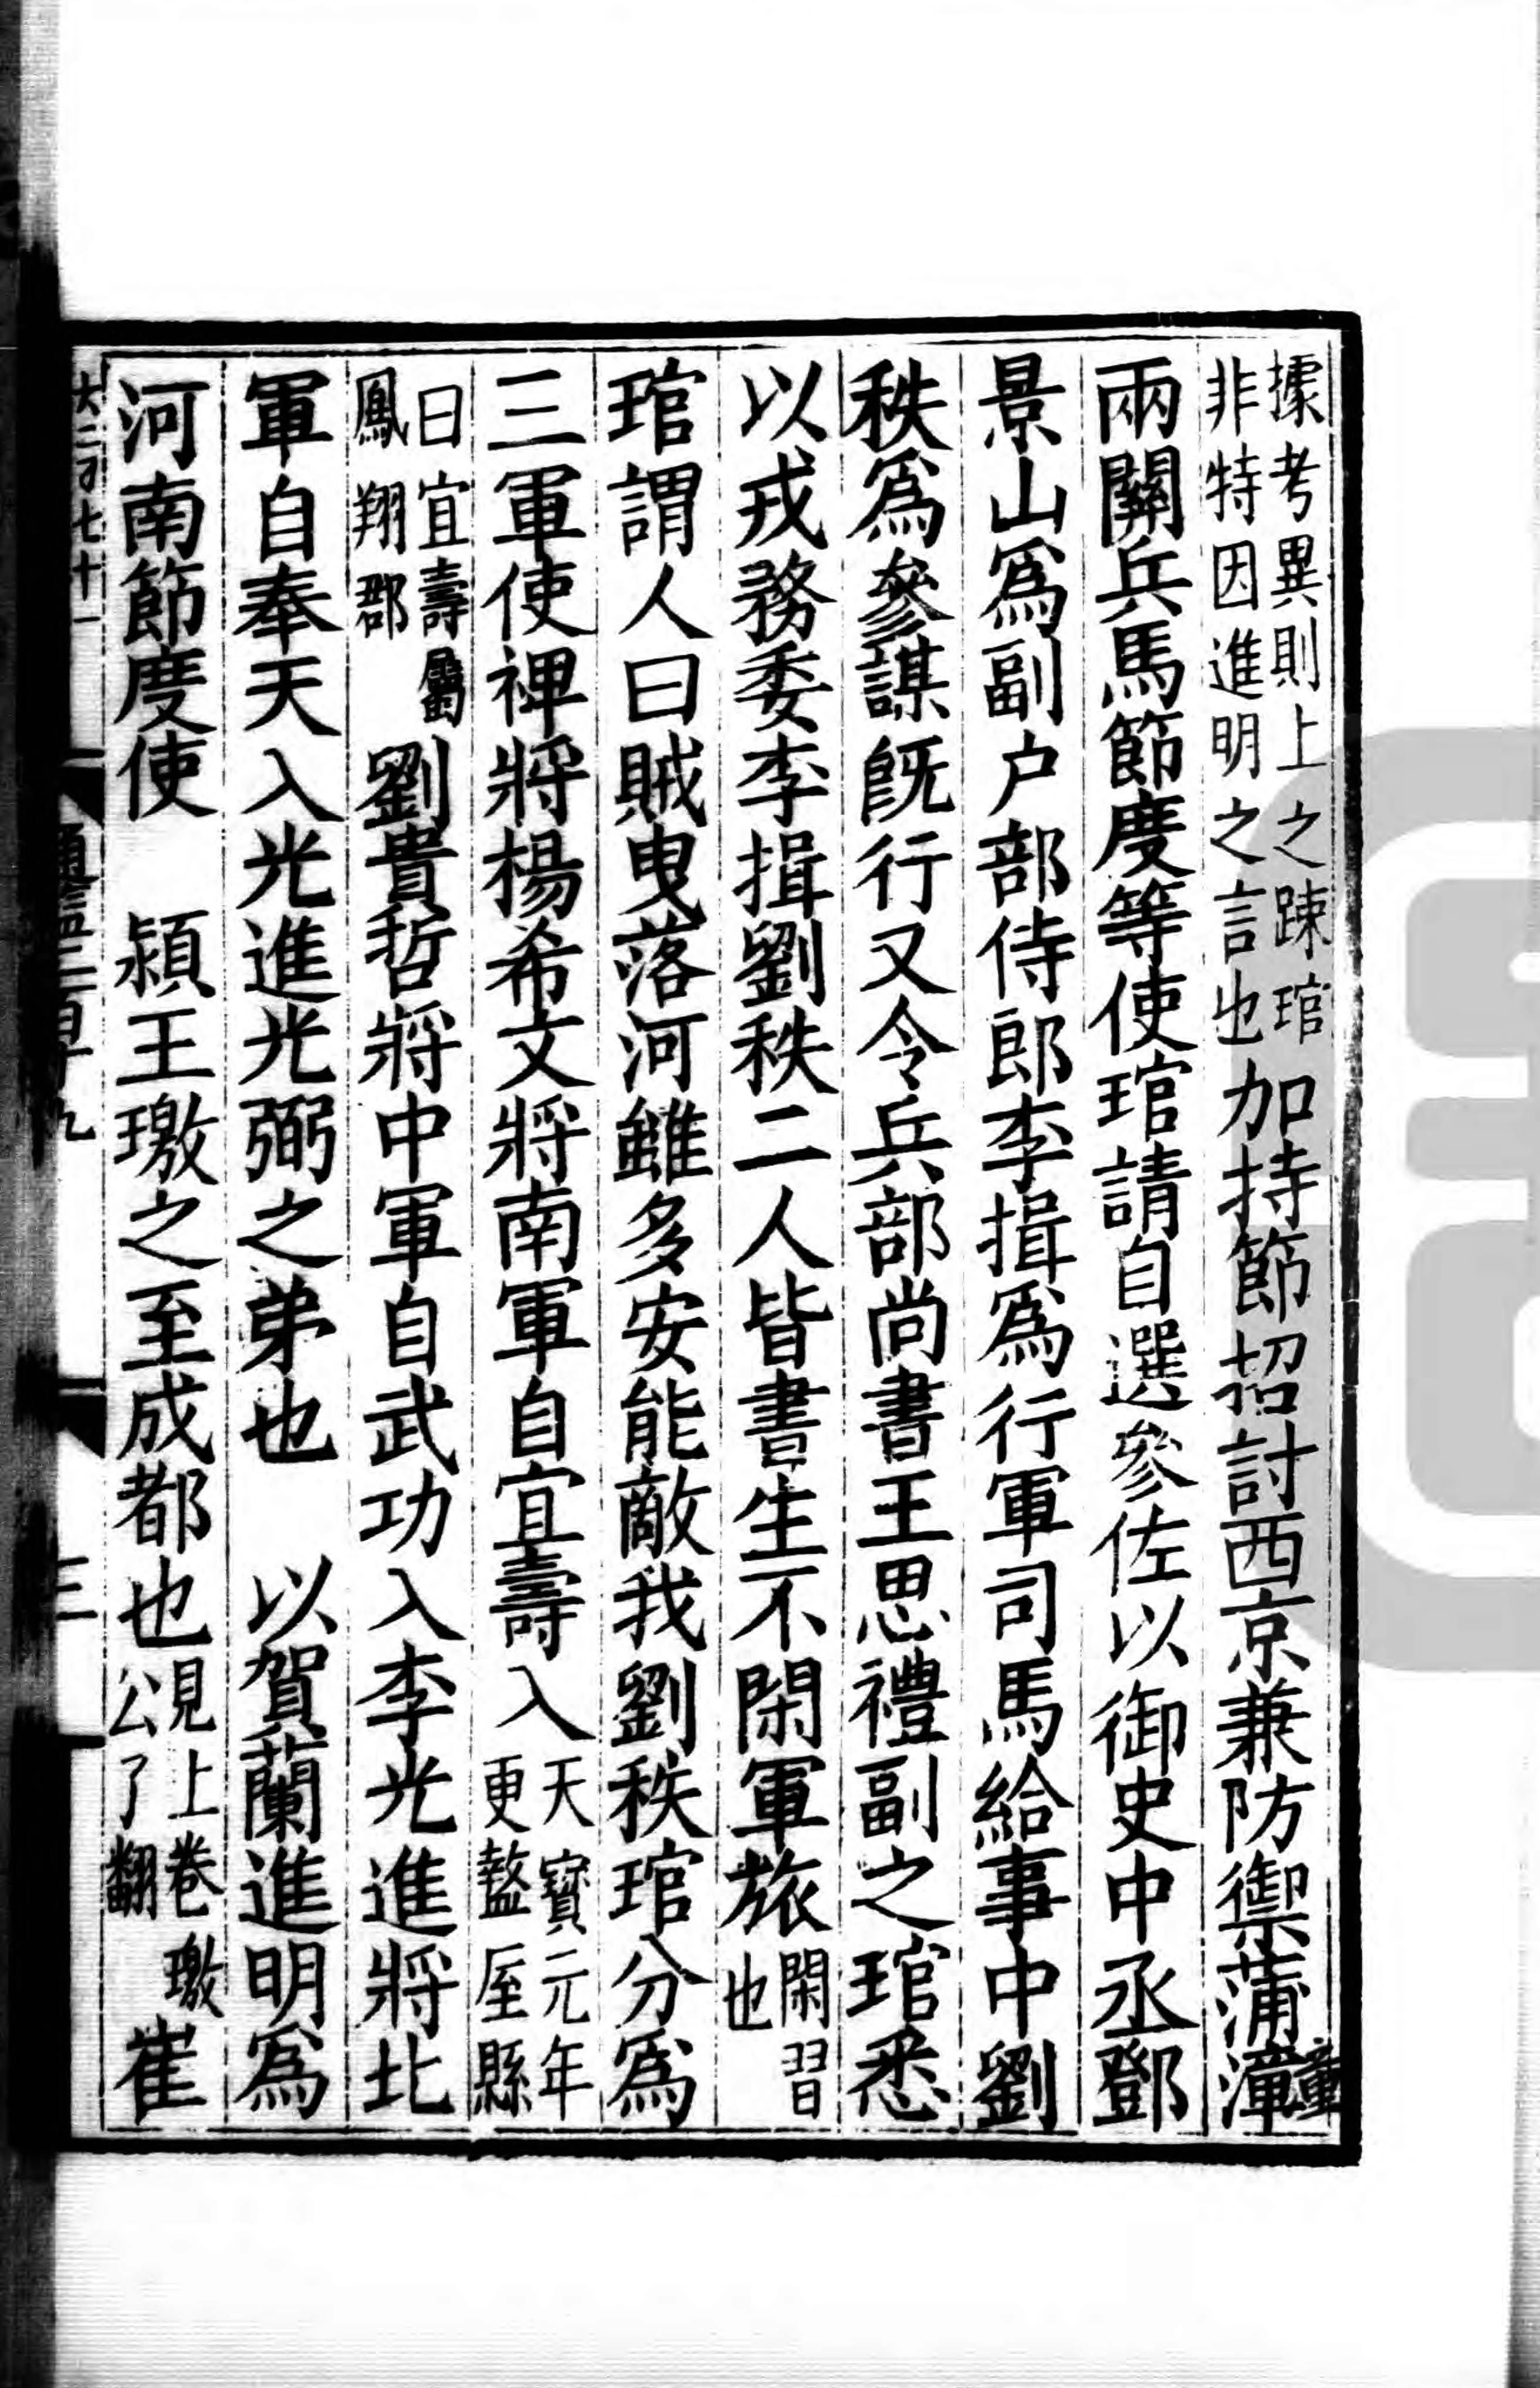 據考異則上之踈琯非特因進明之言也加持節招討西京兼防禦蒲潼
兩關兵馬節度等使琯請自選參佐以御史中丞鄧
景山爲副户部侍郎李揖爲行軍司馬給事中劉
秩爲參謀旣行又令兵部尚書王思禮副之琯悉
以戎務委李揖劉秩二人皆書生不閑軍旅閑習也
琯謂人曰賊曳落河雖多安能敵我劉秩琯分爲
三軍使裨將楊希文將南軍自宜壽入天寶元年更盩厔縣
曰宜壽屬鳳翔郡劉貴哲將中軍自武功入李光進將北
軍自奉天入光進光弼之弟也 以賀蘭進明爲
河南節度使 潁王璬之至成都也見上卷璬公了翻崔
三